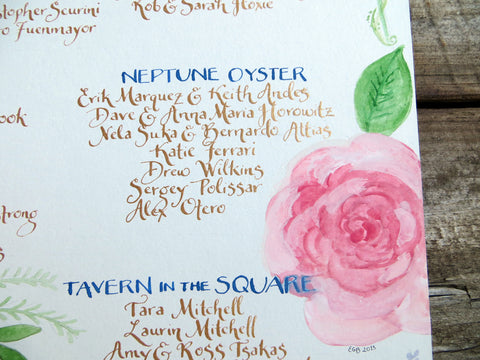 stopher Scurini
o Fuenmayor
Rob & Sarah Hoxie
NEPTUNE OYSTER
Erik Marquez & Keith Andes
Dave & Anna Maria Horowitz
Nela Suka & Bernardo Attias
Katie Ferrari
Drew Wilkins
Sergey Polissar
Alex Otero
ook
strong
s
TAVERN IN THE SQUARE
Tara Mitchell
Laurin Mitchell
Amy & Ross Tsakas
EGB 2013